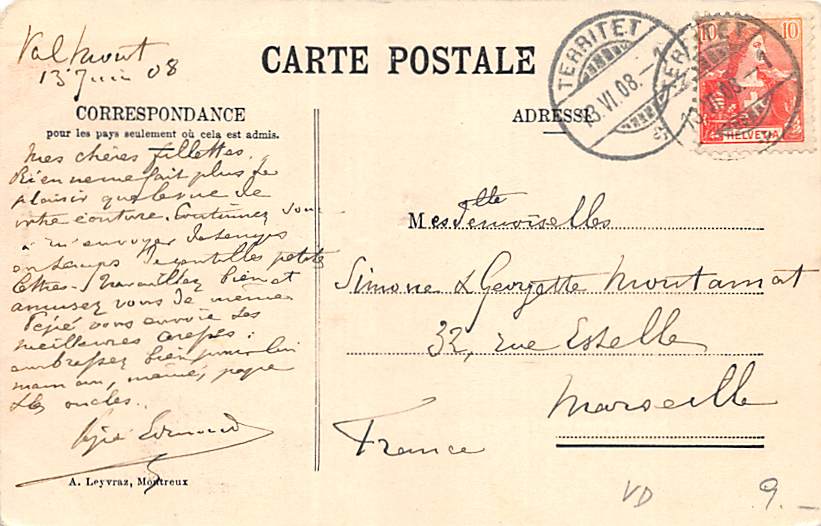 Valmont
13 Juin 08
CARTE POSTALE
TERRITET
13.VI.08.-7
TERRITET
13.VI.08.-7
10 10
HELVETIA
CORRESPONDANCE
pour les pays seulement où cela est admis.
ADRESSE
Mes chères fillettes,
Rien ne me fait plus de
plaisir que la vue de
votre écriture. Continuez donc
à m'envoyer de temps
en temps de gentilles petites
lettres. Travaillez bien et
amusez vous de même.
Pépé vous envoie ses
meilleures
embrassez bien pour lui
maman, mémé, papa
& les oncles.
Pépé Edmond
Mesdemoiselles
Simone & Georgette Montamat
32, rue Estelle
Marseille
France
A. Leyvraz, Montreux
VD
9.-